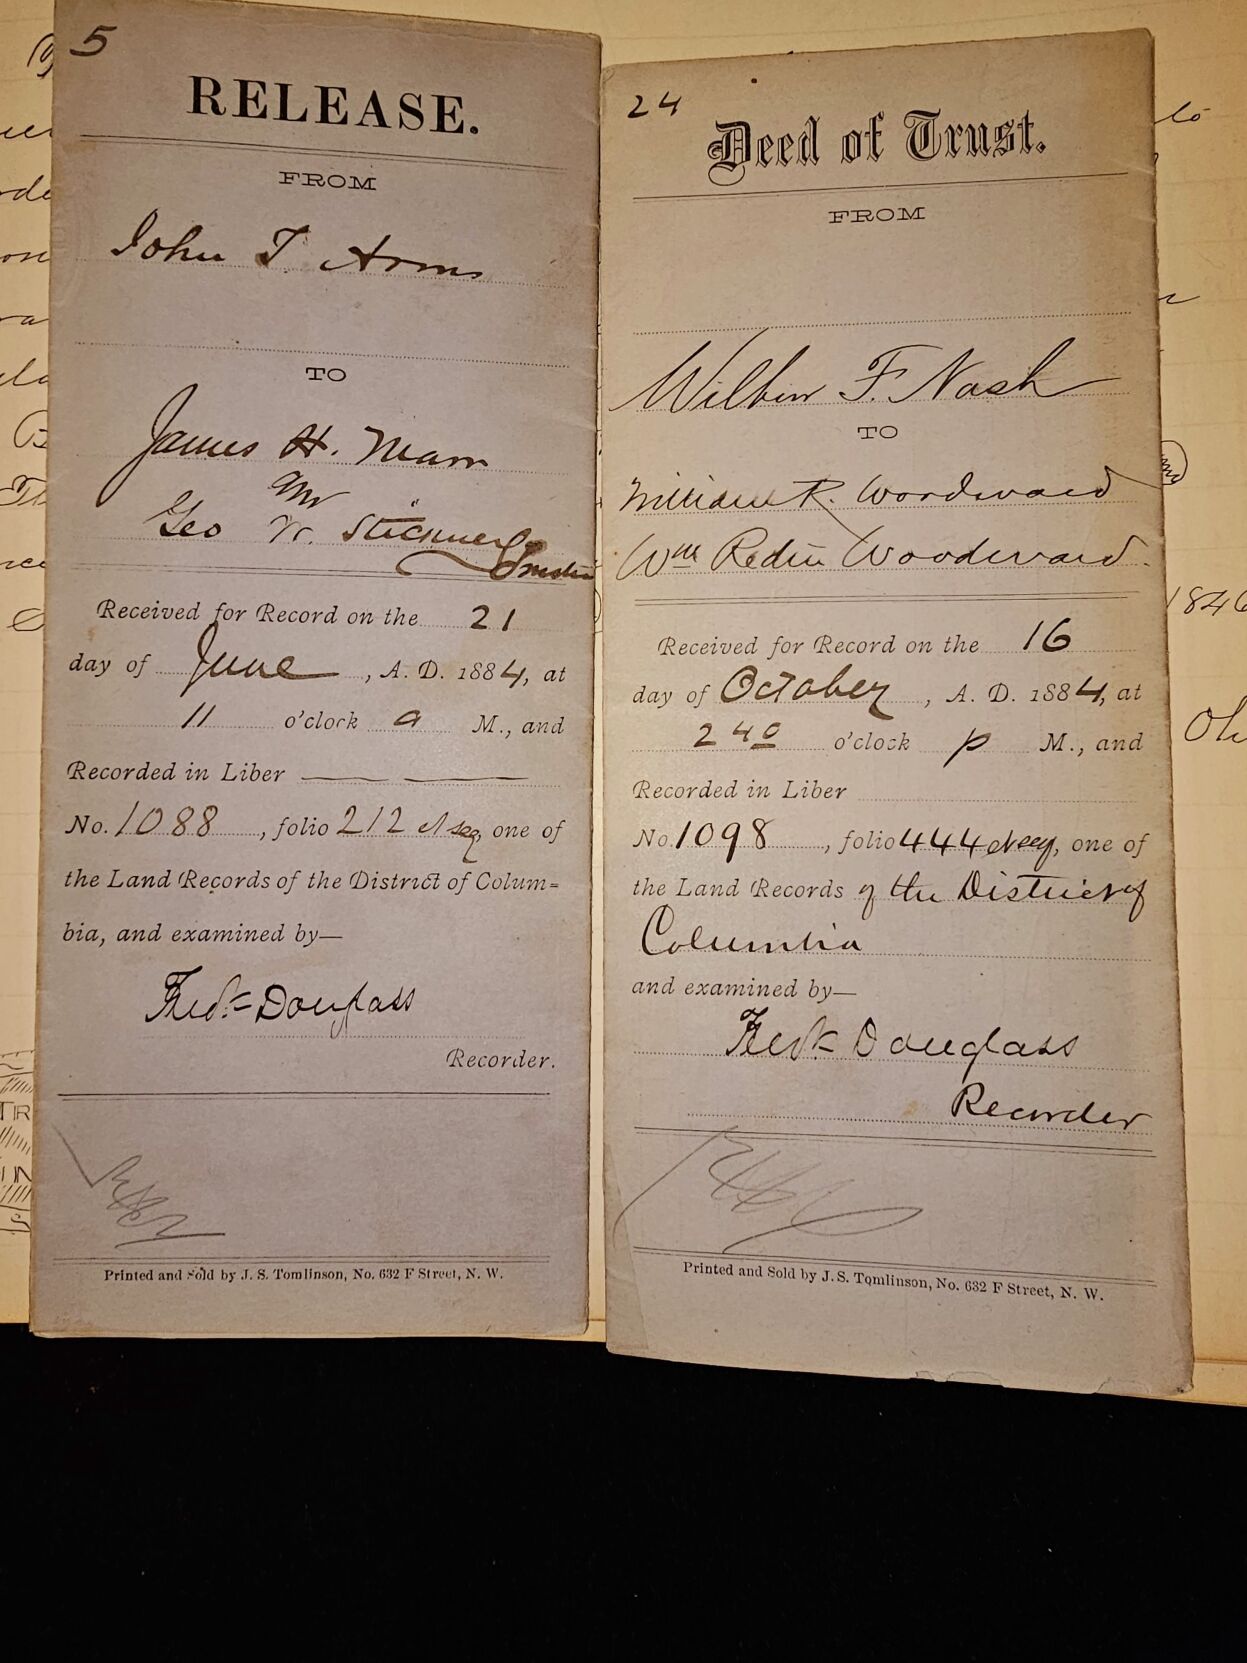 5
RELEASE.
FROM
John T. Arms
TO
James H. Marr
Geo W. Stickney
Received for Record on the 21
day of June, A. D. 1884, at
11 o'clock a M., and
Recorded in Liber
No. 1088, folio 212 et seq, one of
the Land Records of the District of Colum=
bia, and examined by—
Fredk Douglass
Recorder.
Printed and Sold by J. S. Tomlinson, No. 632 F Street, N. W.
24
Deed of Trust.
FROM
F. Nash
TO
William R. Woodward
Wm Redin Woodward.
Received for Record on the 16
day of October, A. D. 1884, at
2 40 o'clock p M., and
Recorded in Liber
No. 1098, folio 444 et seq, one of
the Land Records of the District of
Columbia
and examined by—
Fredk Douglass
Recorder
Printed and Sold by J. S. Tomlinson, No. 632 F Street, N. W.
to
1846